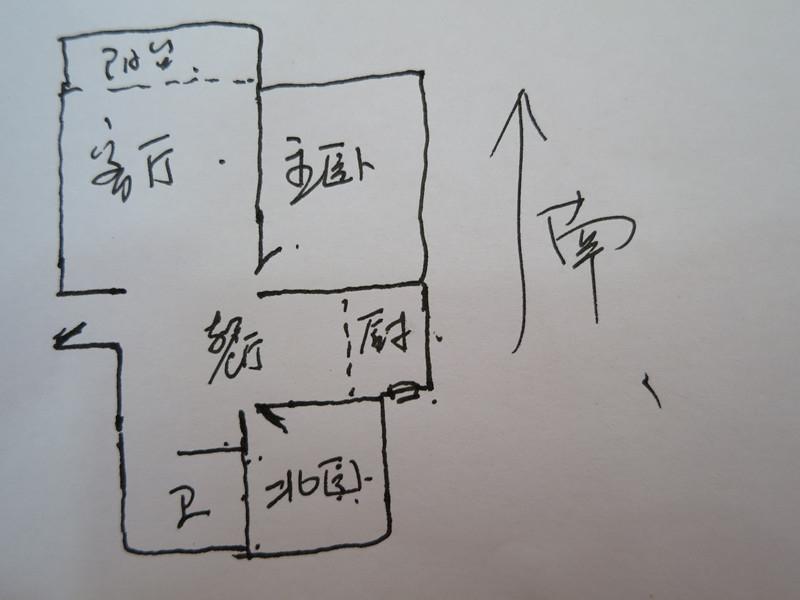 阳台
客厅
主卧
南
餐厅
厨
北卧
卫